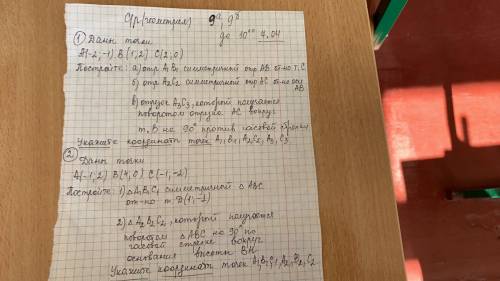 д/р (геометрия) 9а, 9в
до 10⁰⁰ 7.04
① Даны точки
A(-2;-1) B(1;2) C(2;0)
Постройте: а) отр A₁B₁ симметричный отр AB. от-но. т. C
б) отр A₂C₂ симметричный отр AC от-но оси
AB
в) отрезок A₃C₃, который получается
поворотом отрезка AC вокруг
т. B на 90° против часовой стрелки
Укажите координаты точек A₁, B₁, A₂, C₂, A₃, C₃
② Даны точки
A(-1;2) B(4;0) C(-1;-2)
Постройте: 1) △ A₁B₁C₁ симметричный △ ABC
от-но т. D(1;-1)
2) △ A₂B₂C₂, который получается
поворотом △ABC на 90° по
часовой стрелке вокруг
основания высоты BH
Укажите координаты точек A₁, B₁, C₁, A₂, B₂, C₂